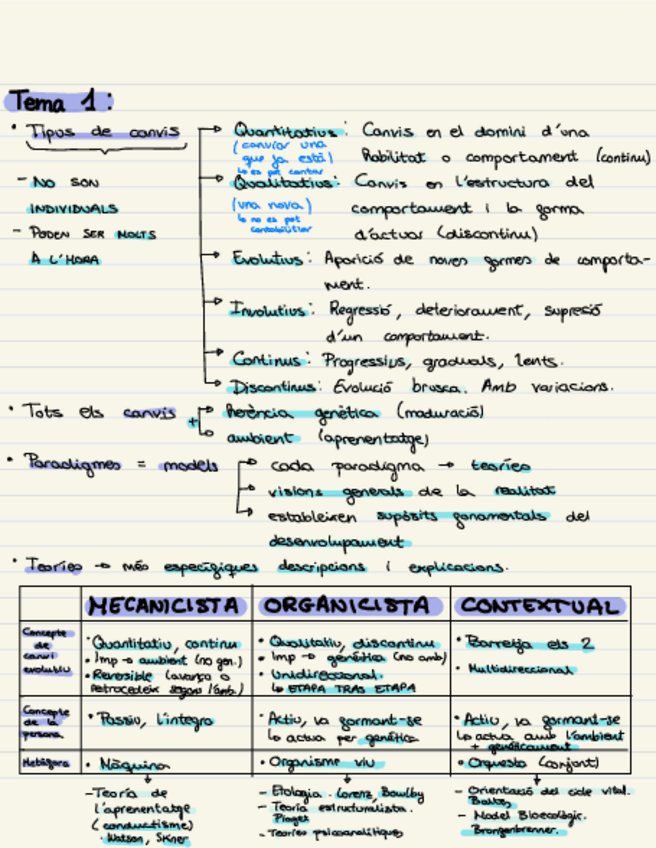 Tema 1:
· Tipus de canvis
- NO SON
INDIVIDUALS
- PODEN SER MOLTS
A L'HORA
Quantitatius: Canvis en el domini d'una
(canviar una
que ja està)
↳ es pot contar
habilitat o comportament (continu)
Qualitatius: Canvis en l'estructura del
(una nova)
↳ no es pot
contabilitzar
comportament i la forma
d'actuar (discontinu)
Evolutius: Aparició de noves formes de comporta-
ment.
Involutius: Regressió, deteriorament, supresió
d'un comportament.
Continus: Progressius, graduals, lents.
Discontinus: Evolució brusca. Amb variacions.
· Tots els canvis + herència genètica (maduració)
ambient (aprenentatge)
· Paradigmes = models
cada paradigma → teories
visions generals de la realitat
estableixen supòsits fonamentals del
desenvolupament
· Teories → més específiques descripcions i explicacions.
MECANICISTA ORGANICISTA CONTEXTUAL
Concepte
de
canvi
evolutiu
· Quantitatiu, continu
· Imp → ambient (no gen.)
· Reversible (avança o
retrocedeix segons l'amb.)
· Qualitatiu, discontinu
· Imp → genètica (no amb)
· Unidireccional.
↳ ETAPA TRAS ETAPA
· Barreja els 2
· Multidireccional
Concepte
de la
persona.
· Passiu, l'integra
· Actiu, va formant-se
↳ actua per genètica
· Actiu, va formant-se
↳ actua amb l'ambient
+ genèticament
Metàfora
· Màquina
· Organisme viu
· Orquesta (conjunt)
- Teoria de
l'aprenentatge
(conductisme)
· Watson, Skiner
- Etologia. Lorenz, Bowlby
- Teoria estructuralista.
Piaget
- Teories psicoanalítiques
- Orientació del cicle vital.
Baltes
- Model Bioecològic.
Bronfenbrenner.